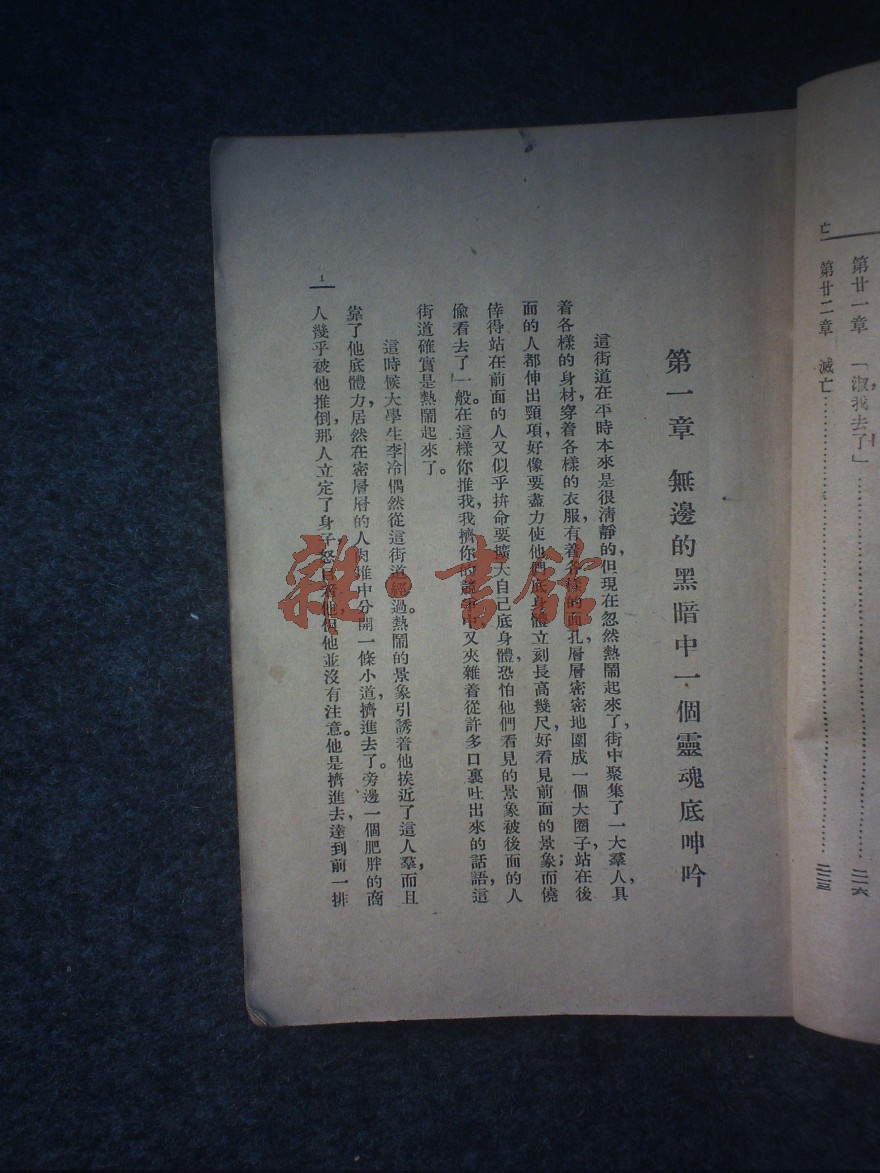 亡
第廿一章　「淑，我去了」……………………二一六
第廿二章　滅亡……………………二二三
第一章　無邊的黑暗中一個靈魂底呻吟
這街道在平時本來是很淸靜的，但現在忽然熱鬧起來了，街中聚集了一大羣人，具
着各樣的身材，穿着各樣的衣服，有着各樣的面孔，層層密密地圍成一個大圈子，站在後
面的人都伸出頸項，好像要盡力使他們底身體立刻長高幾尺，好看見前面的景象；而僥
倖得站在前面的人又似乎拚命要擴大自己底身體，恐怕他們看見的景象被後面的人
偸看去了一般。在這樣你推我，我擠你的競爭中又夾雜着從許多口裏吐出來的話語，這
街道確實是熱鬧起來了。
這時候大學生李冷偶然從這街道經過。熱鬧的景象引誘着他挨近了這人羣，而且
靠了他底體力，居然在密層層的人肉堆中分開一條小道，擠進去了。旁邊一個肥胖的商
人幾乎被他推倒，那人立定了身子怒目看他，但他並沒有注意。他是擠進去，達到前一排
1
雜·書館